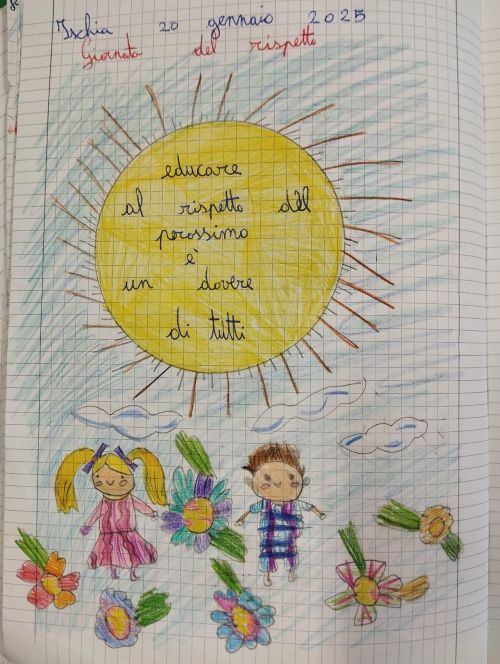 Ischia 20 gennaio 2025
Giornata del rispetto
educare
al rispetto del
perossimo
è
un dovere
di tutti